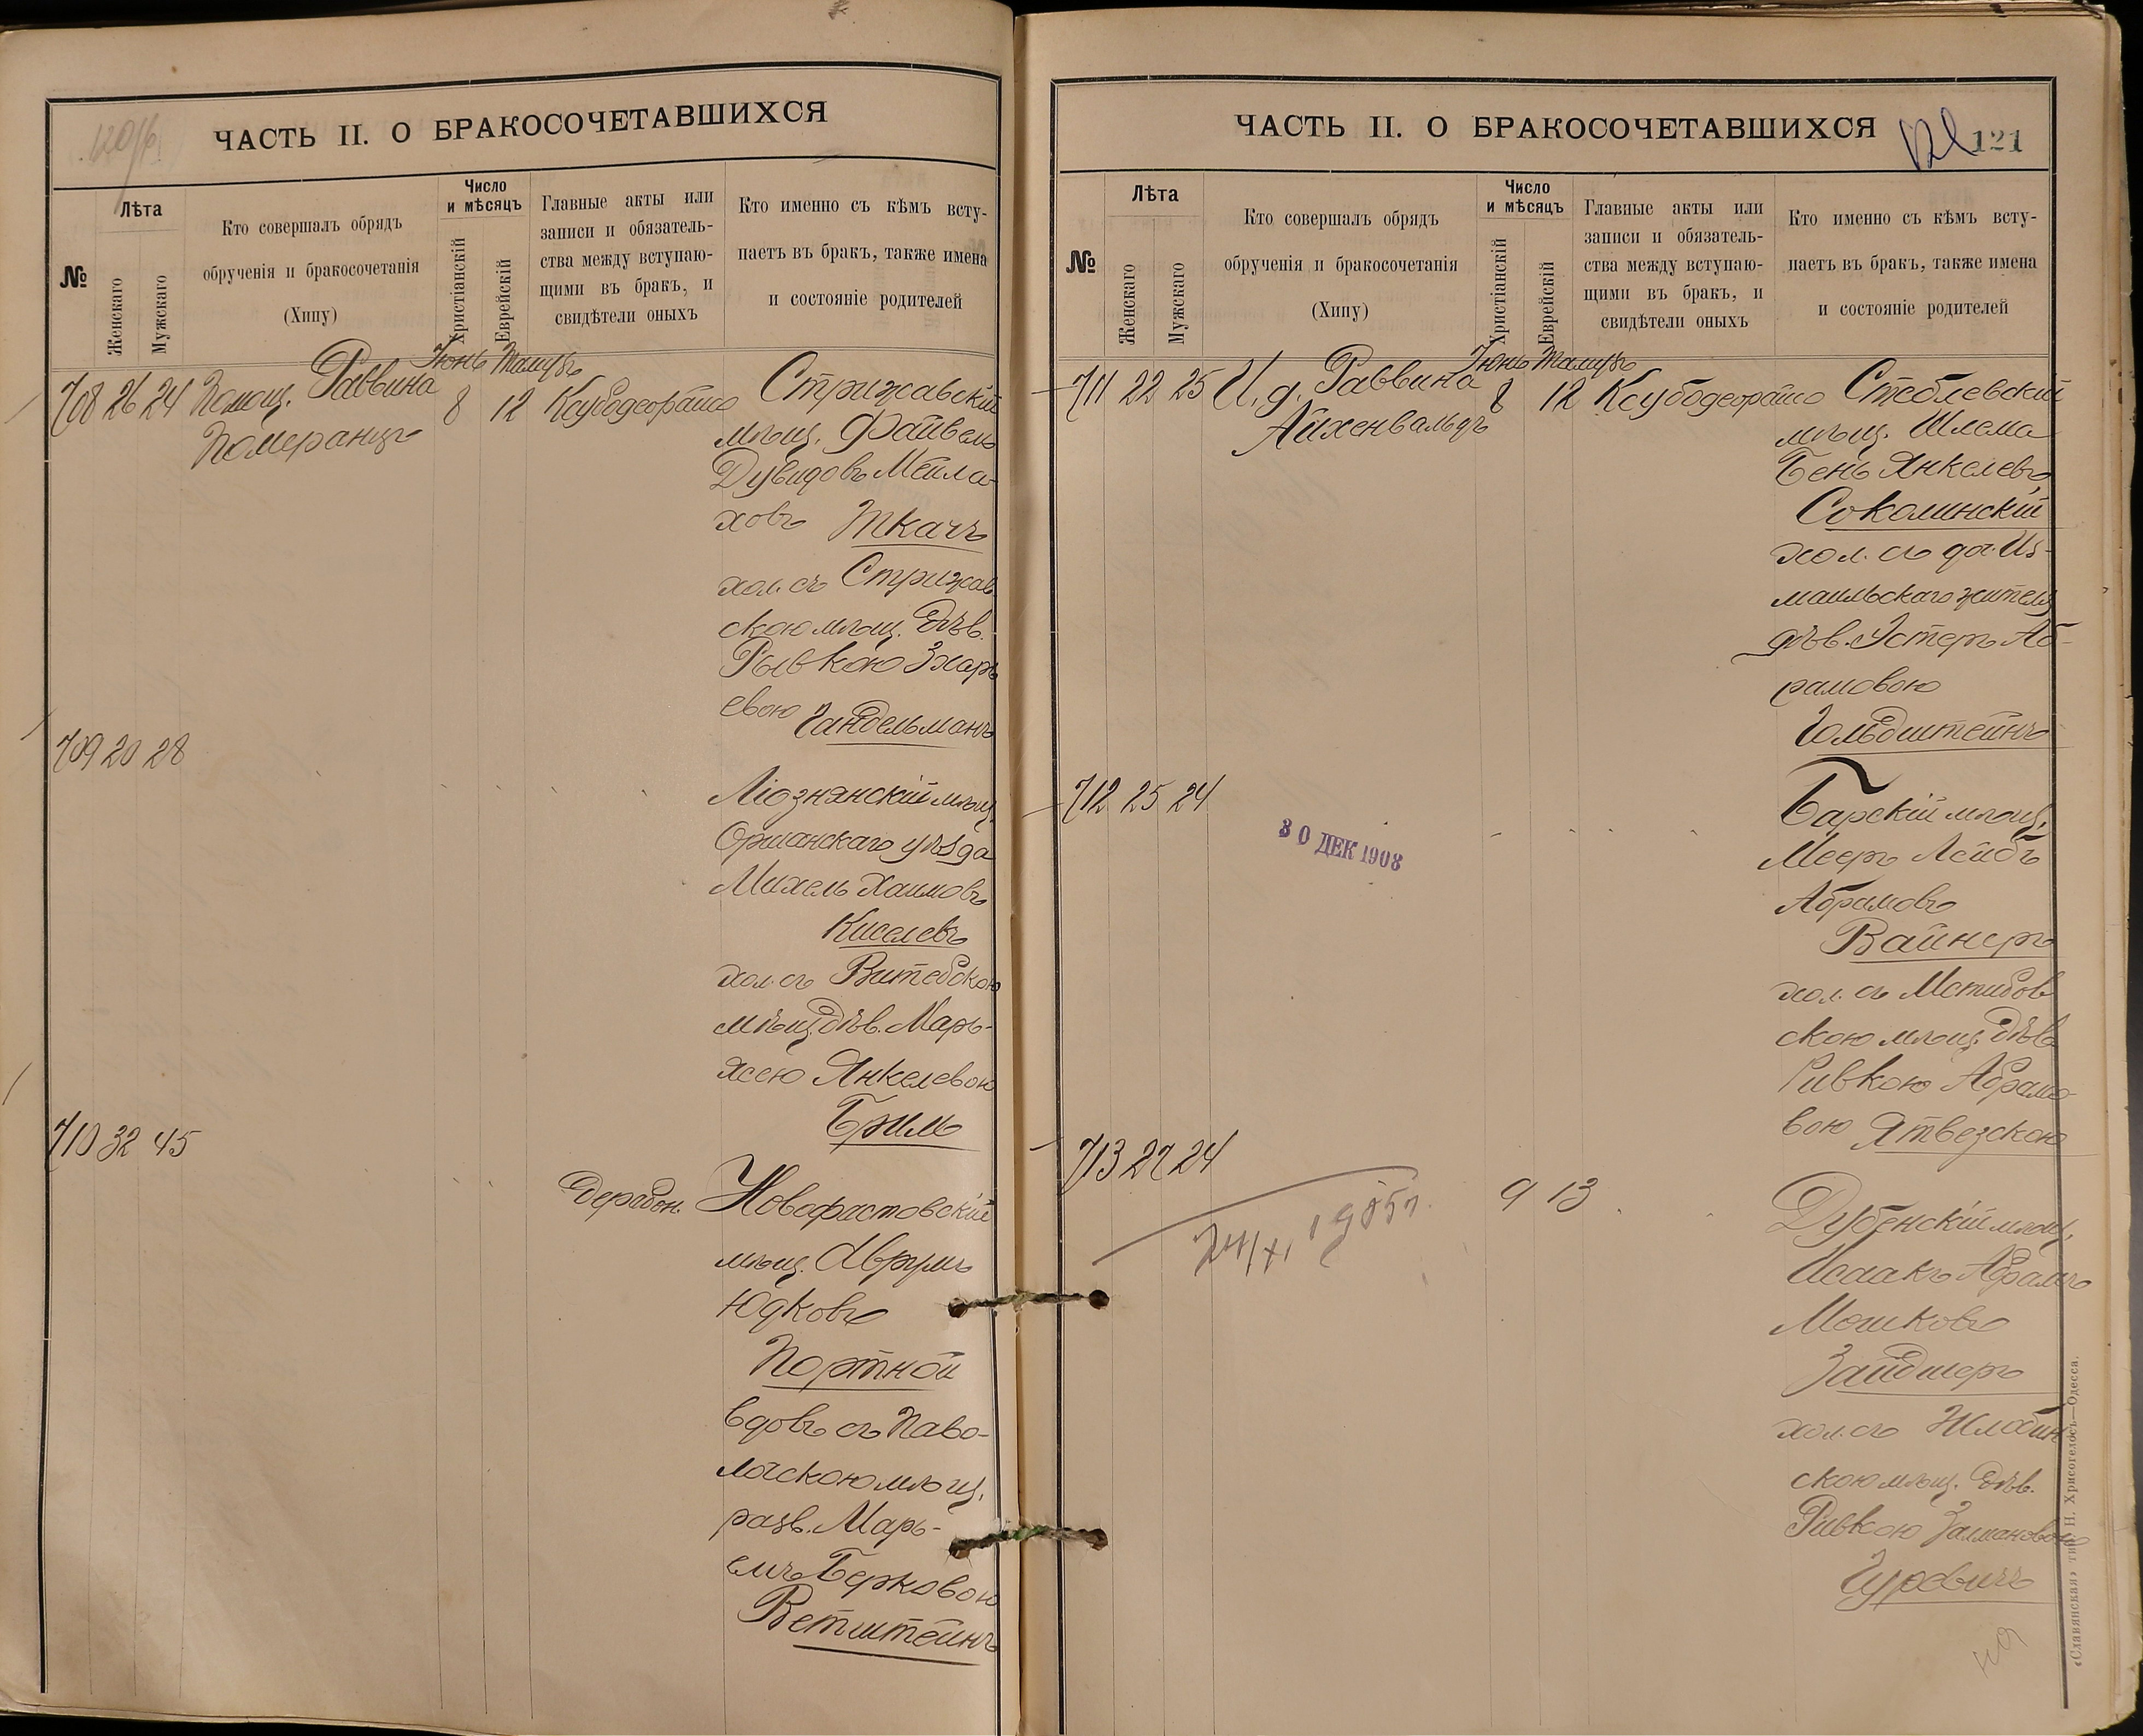 ЧАСТЬ II. О БРАКОСОЧЕТАВШИХСЯ
№
Лѣта
Женскаго
Мужскаго
Кто совершалъ обрядъ
обрученія и бракосочетанія
(Хипу)
Число
и мѣсяцъ
Христіанскій
Еврейскій
Главные акты или
записи и обязатель-
ства между вступаю-
щими въ бракъ, и
свидѣтели оныхъ
Кто именно съ кѣмъ всту-
паетъ въ бракъ, также имена
и состояніе родителей
Іюнь Тамузъ
708 26 24 Помощ. Раввина 8 12
Померанцъ
Стрижавскій
мѣщ. Файвель
Дувидовъ Мейла-
ховъ Ткачъ
хол. съ Стрижав
скою мѣщ. дѣв.
Рывкою Зхарь
евою Гандельманъ
709 20 28
Ліознянскій мѣщ.
Оршанскаго уѣзда
Михель Хаимовъ
Киселевъ
хол. съ Витебскою
мѣщ. дѣв. Марь-
ясею Янкелевою
Брил
710 32 45
Новофастовскій
мѣщ. Аврумъ
Юдковъ
Портной
вдовъ съ Паво-
лочскою мѣщ.
разв. Марь-
емъ Берковою
Ветштейнъ
ЧАСТЬ II. О БРАКОСОЧЕТАВШИХСЯ
121
№
Лѣта
Женскаго
Мужскаго
Кто совершалъ обрядъ
обрученія и бракосочетанія
(Хипу)
Число
и мѣсяцъ
Христіанскій
Еврейскій
Главные акты или
записи и обязатель-
ства между вступаю-
щими въ бракъ, и
свидѣтели оныхъ
Кто именно съ кѣмъ всту-
паетъ въ бракъ, также имена
и состояніе родителей
Іюнь Тамузъ
711 22 25 И. д. Раввина 8 12
Айхенвальдъ
Стеблевскій
мѣщ. Шлема
Бень Янкелевъ
Соколинскій
хол. съ доч. Из-
маильскаго жителя
дѣв. Эстеръ Аб-
рамовою
Гольдштейнъ
712 25 24
30 ДЕК 1908
Барскій мѣщ.
Мееръ Лейбъ
Абрамовъ
Вайнеръ
хол. съ Мстибов
скою мѣщ. дѣв
Ривкою Абрамо
вою Ятвезскою
713 27 24
9 13
Дубенскій мѣщ.
Исаакъ Абрамъ
Мошковъ
Зайдшеръ
хол. съ Жлобин
скою мѣщ. дѣв.
Ривкою Залмановою
Гуревичъ
«Славянская» тип. Н. Хрисогелосъ—Одесса.